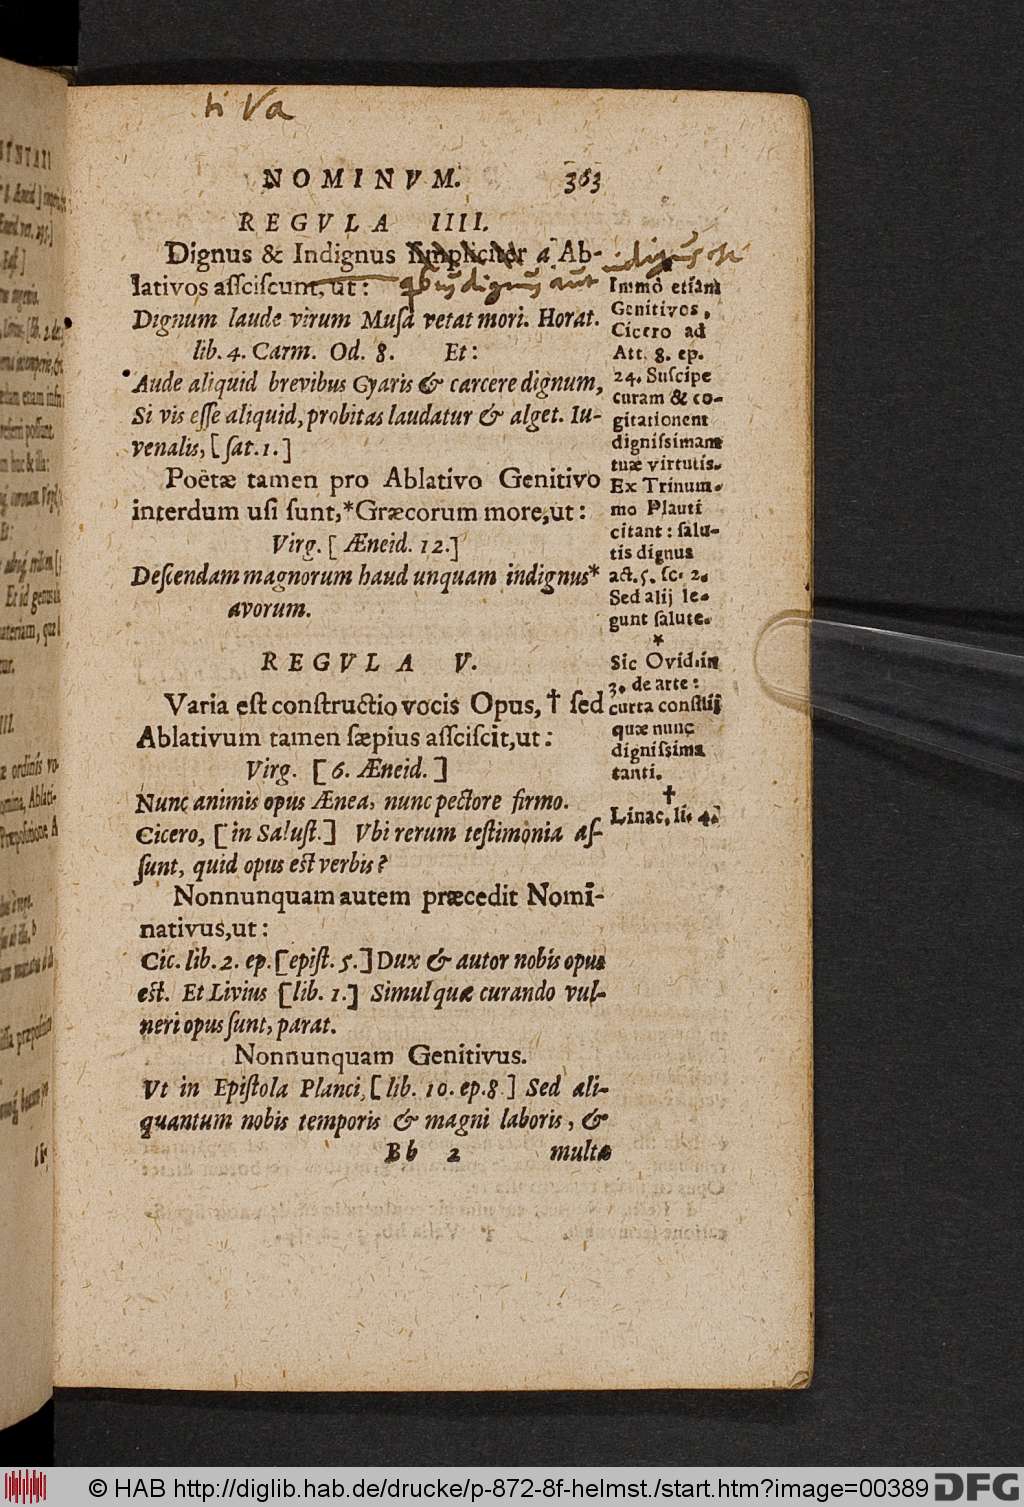 ti Va
NOMINVM. 363
REGVLA IIII.
Dignus & Indignus simpliciter a Ab-
lativos asſciſcunt, ut:
Dignum laude virum Musa vetat mori. Horat.
lib. 4. Carm. Od. 8. Et:
Aude aliquid brevibus Gyaris & carcere dignum,
Si vis eſſe aliquid, probitas laudatur & alget. Iu-
venalis, [ſat. 1.]
Poëtæ tamen pro Ablativo Genitivo
interdum uſi ſunt,*Græcorum more,ut:
Virg. [Æneid. 12.]
Deſcendam magnorum haud unquam indignus*
avorum.
REGVLA V.
Varia eſt conſtructio vocis Opus, † ſed
Ablativum tamen ſæpius aſſciſcit,ut:
Virg. [6. Æneid.]
Nunc animis opus Ænea, nunc pectore firmo.
Cicero, [in Saluſt.] Vbi rerum teſtimonia aſ-
ſunt, quid opus eſt verbis?
Nonnunquam autem præcedit Nomi-
nativus,ut:
Cic. lib. 2. ep. [epiſt. 5.] Dux & autor nobis opus
eſt. Et Livius [lib. 1.] Simul quæ curando vul-
neri opus ſunt, parat.
Nonnunquam Genitivus.
Vt in Epiſtola Planci, [lib. 10. ep. 8.] Sed ali-
quantum nobis temporis & magni laboris, &
Bb 2 multæ
Immò etiam
Genitivos,
Cicero ad
Att. 8. ep.
24. Suſcipe
curam & co-
gitationem
digniſsimam
tuæ virtutis.
Ex Trinum-
mo Plauti
citant: ſalu-
tis dignus
act. 5. ſc. 2.
Sed alij le-
gunt ſalute.
*
Sic Ovid. in
3. de arte:
curta conſilij
quæ nunc
digniſsima
tanti.
†
Linac. li. 4.
© HAB http://diglib.hab.de/drucke/p-872-8f-helmst./start.htm?image=00389 DFG